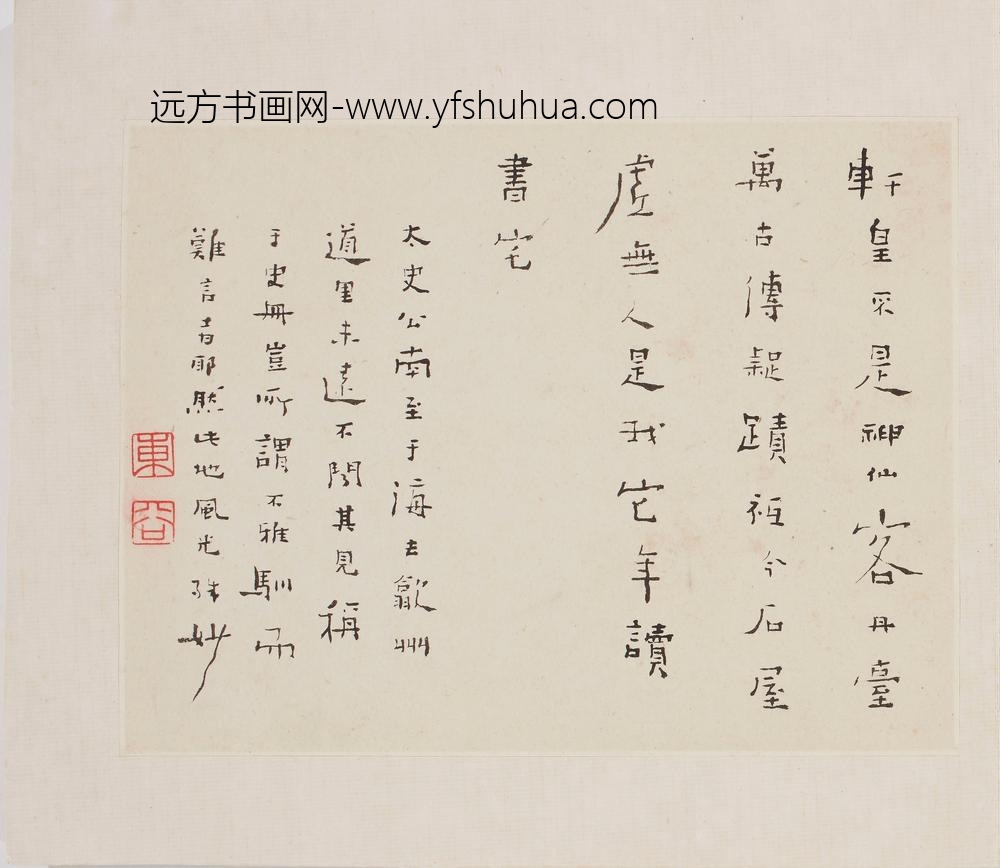 远方书画网-www.yfshuhua.com
軒皇不是神仙客丹臺
萬古傳疑蹟祗今石屋
虛無人是我它年讀
書宅
太史公南至于海去歙州
道里未遠不聞其見稱
于史冊豈所謂不雅馴而
難言者耶然此地風光殊妙